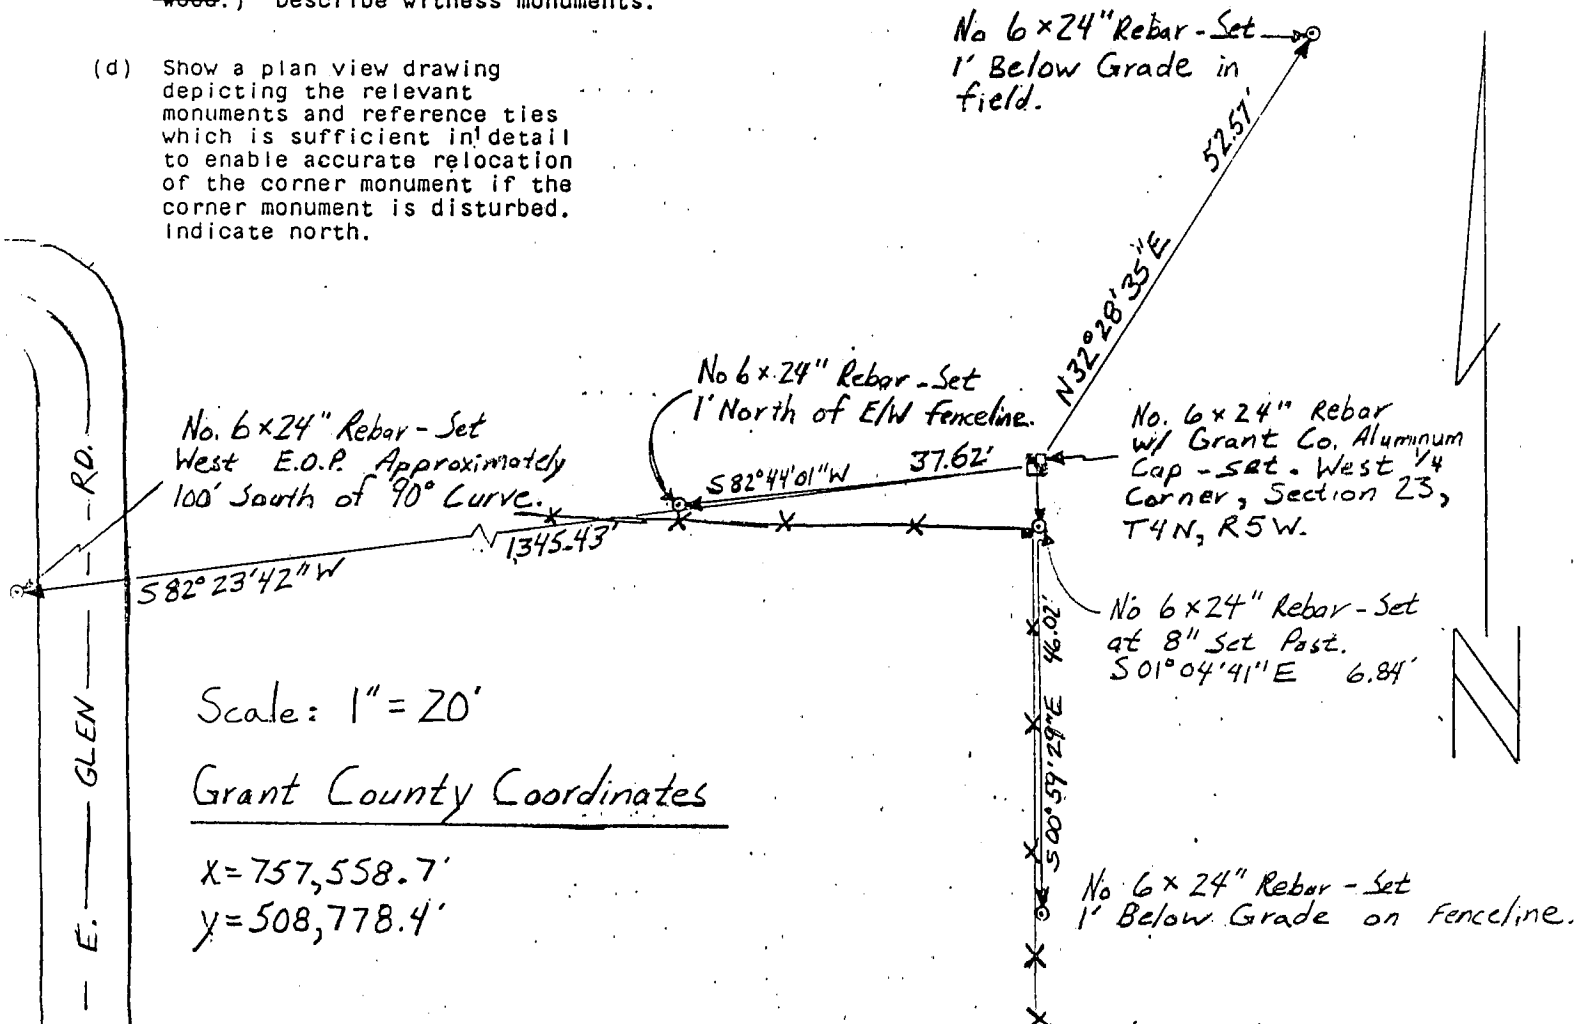 wood.) Describe witness monuments.
(d) Show a plan view drawing
depicting the relevant
monuments and reference ties
which is sufficient in detail
to enable accurate relocation
of the corner monument if the
corner monument is disturbed.
Indicate north.
No 6 x 24" Rebar - Set
1' Below Grade in
field.
52.57'
N32°28'35"E
No 6 x 24" Rebar - Set
1' North of E/W fenceline.
No. 6 x 24" Rebar - Set
West E.O.P. Approximately
100' South of 90° Curve.
S82°44'01"W 37.62'
1345.43'
S82°23'42"W
No. 6 x 24" Rebar
w/ Grant Co. Aluminum
Cap - set. West 1/4
Corner, Section 23,
T4N, R5W.
No 6 x 24" Rebar - Set
at 8" Set Post.
S01°04'41"E 6.84'
S00°59'29"E 46.02'
N
E. GLEN RD.
Scale: 1" = 20'
Grant County Coordinates
X=757,558.7'
y=508,778.4'
No 6 x 24" Rebar - Set
1' Below Grade on Fenceline.